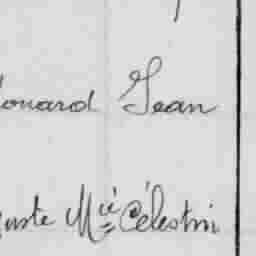 douard Jean
uste Mie Célestin